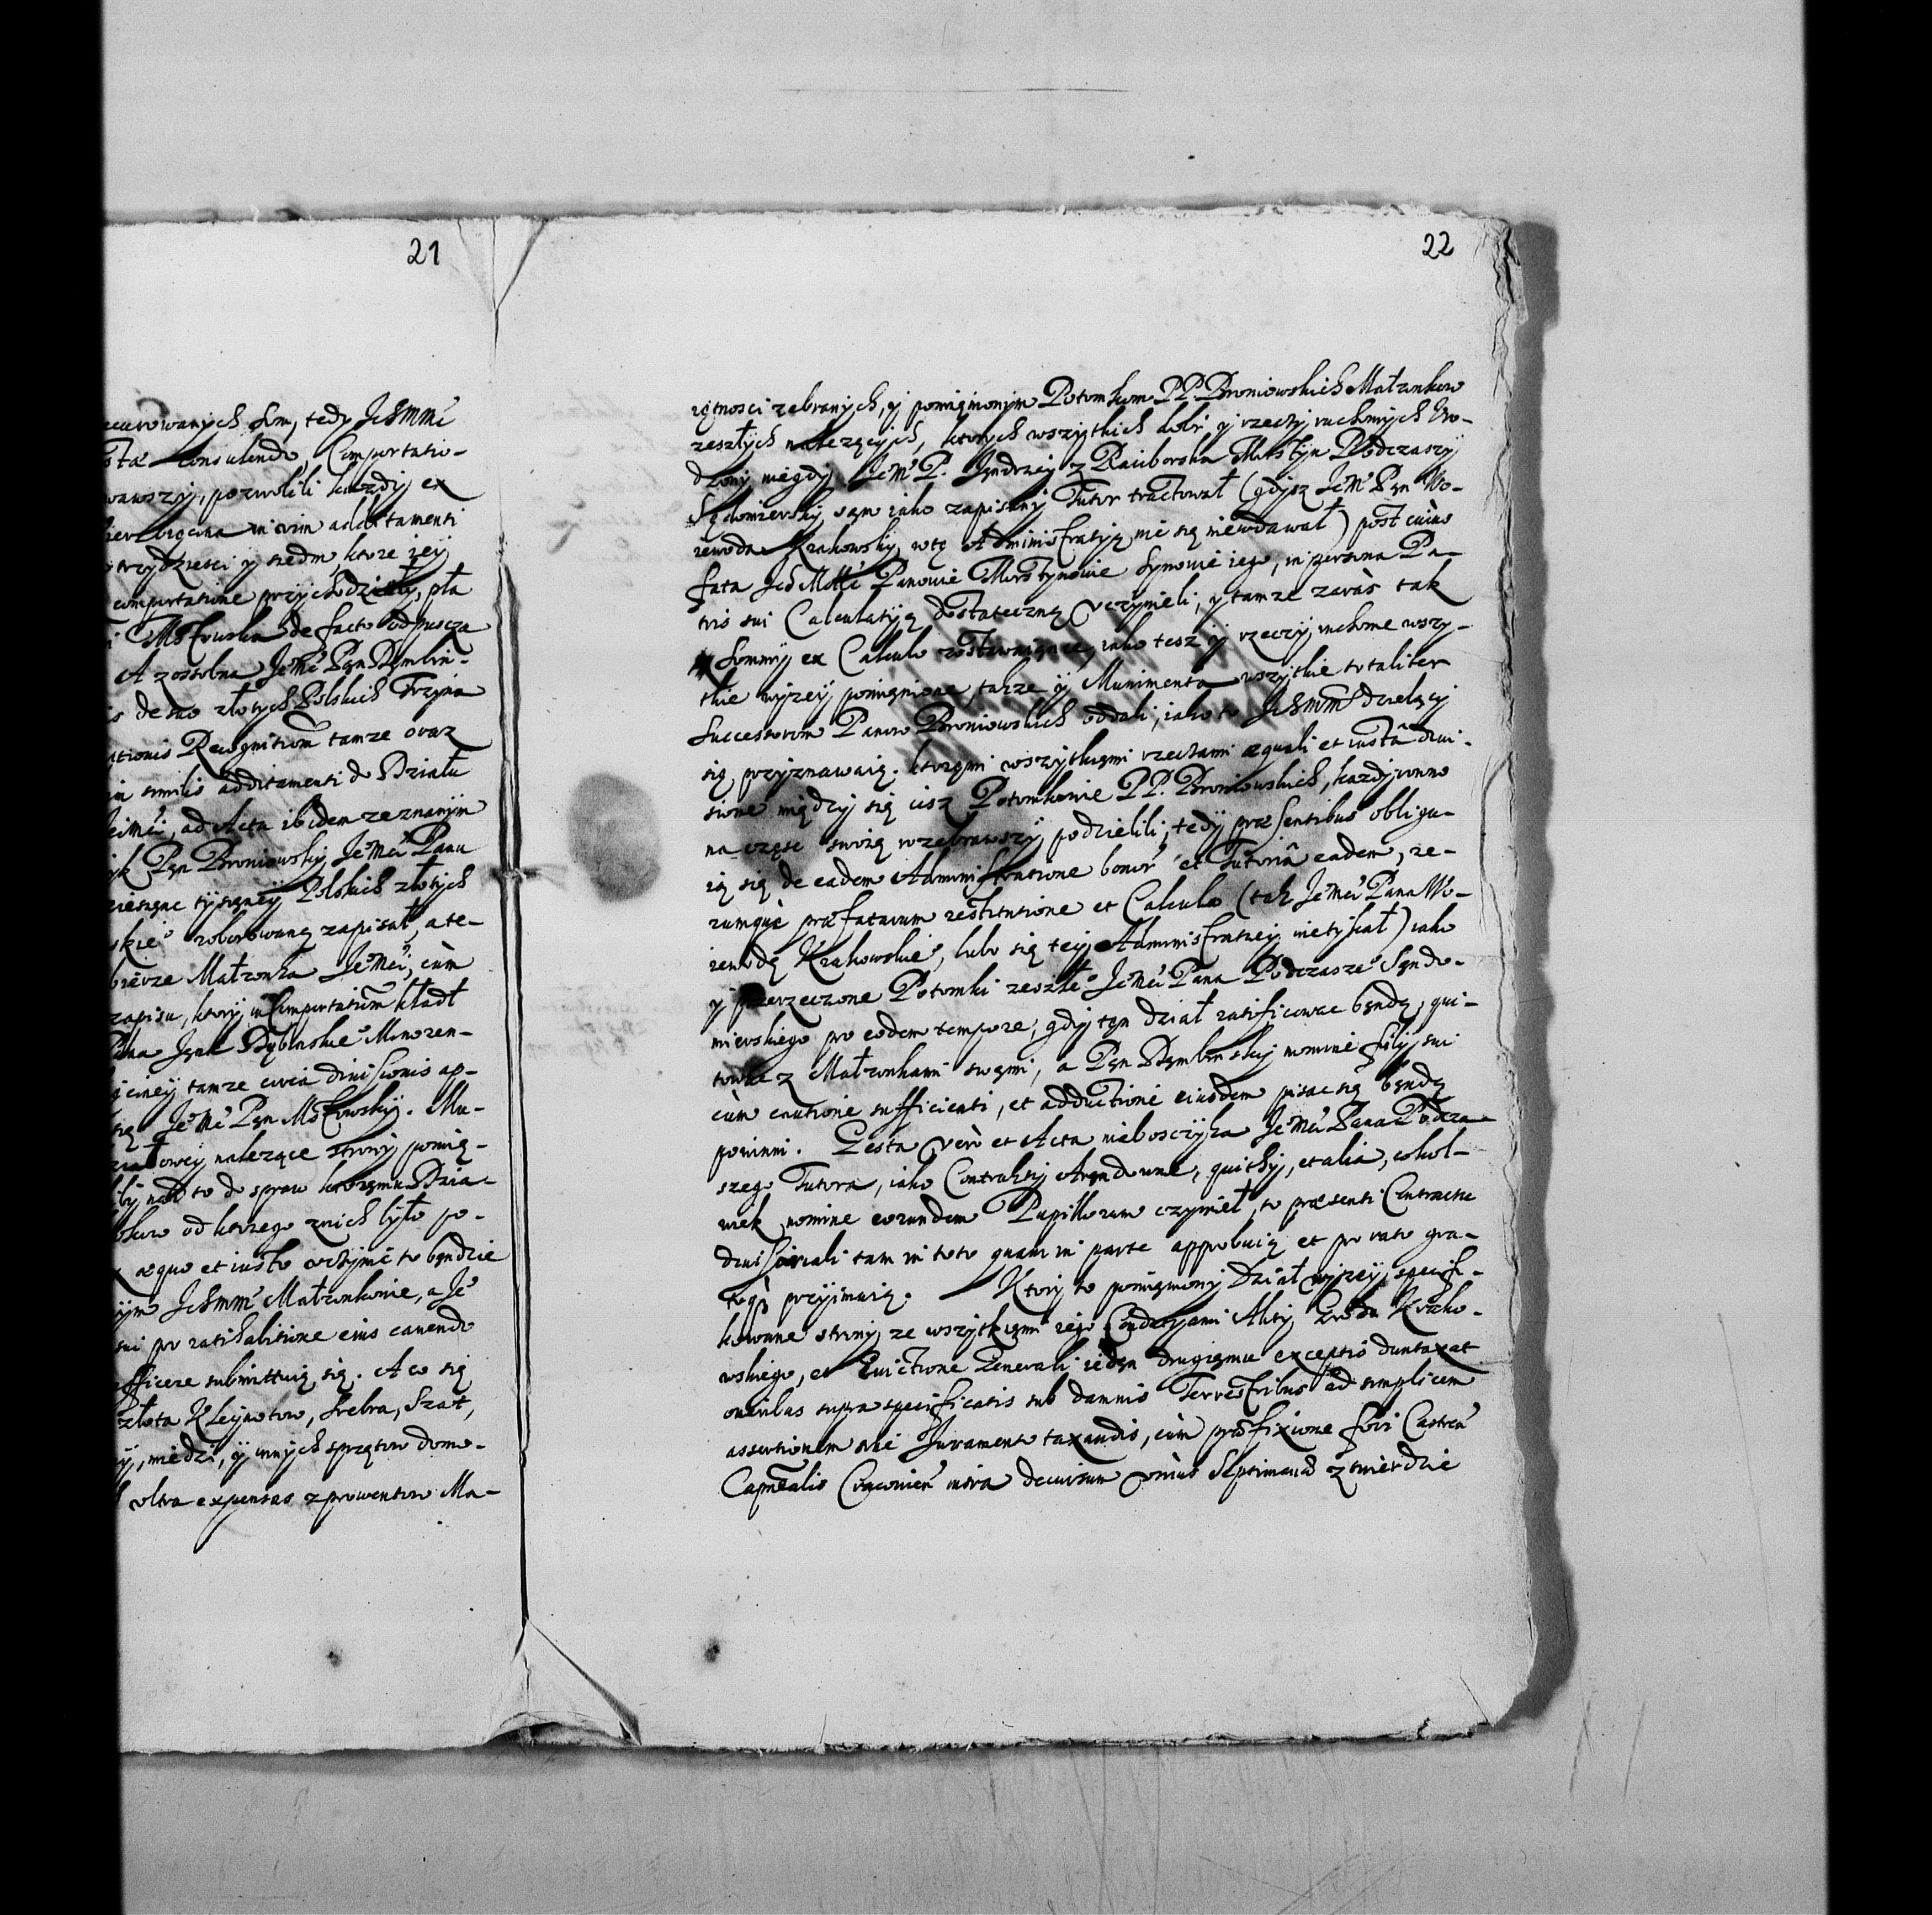 21
ecurowanych Sm, tedy JchMMci
consulendo Comportatio-
wawszÿ, pozwolili kazdÿ ex
in vim additamenti
trzÿdziesci ÿ siedm ktore ieÿ
comportatione przÿchodziełÿ, pła
de facto odpuscza
A zosobna JeMci Pąn Dęmbin-
de suo złotÿch Polskich Trzÿsta
ationis Recognitiom tamze oraz
in similis additamenti do Działu
eiMci, ad Acta ibidem zeznanÿm
Pąn Broniowskÿ JeMci Panu
dziesiąnc tÿsięneÿ Polskich złotÿch
roborowanę zapisał, a te-
bierze Małzonka JeMci, cum
zapisu, ktorÿ in Comportatium kładł
Pana Jąna Dębinskie° Monozen-
tamze circa diuisionis ap-
się JeMci Pąn Mstowskÿ. Mu-
działoweÿ nalezące stronÿ pomię-
nad to do spraw ktoręmu Dzia-
od ktorego znich było po-
x aequo et iusto ordÿnic to będzie
JchMMci Małzonkowie, a Je°
sui pro ratihabitione eius cauendo
efficere submittuią się. A co się
złota Kleÿnotow, srebra, szat,
miedzi, ÿ innÿch sprzętow domo-
vltra expensas z prowentow Ma-
22
iętnosci zebranÿch, ÿ pomięnionÿm Potomkom PP. Broniowskich Małzonkow
zeszłÿch nalezącÿch, ktorÿch wszÿtkich dobr ÿ rzeczÿ ruchomÿch Vro-
dzonÿ niegdÿ JeMc P. Jęndrzeÿ z Raciborska Morstÿn Podczaszÿ
Sędomierskÿ sąm iako zapisanÿ Tutor tractował (gdÿsz JeMc Pąn Wo-
iewoda Krakowskÿ wtę Administratią nic się niewdawał) post cuius
fata JchMMci Panowie Morstÿnowie Sÿnowie iego, in persona Pa-
tris sui Calculatÿą dostateczną vczÿnieli, ÿ tamze zaràs tak
Sommÿ ex Calculo zostawaiące, iako tesz ÿ rzeczÿ ruchome wszÿ-
tkie wÿzeÿ pomięnione, takze ÿ Munimenta wszÿtkie totaliter
Successorom Panow Broniowskich oddali, iako to JchMMci dzielący
się przÿznawaią. ktoręmi wszÿtkięmi rzeczami aequali et iusta diui-
sione międzÿ się cisz Potomkowie PP. Broniowskich, kazdÿ rowno
na częsc swoią rozebrawszÿ podzielili, tedÿ praesentibus obligu-
ią się de eadem Administratione bonor et Tutoria eadem, re-
rumquè praefatarum restitutione et Calculo (tak JeMci Pana Wo-
iewodę Krakowskie°, lubo się teÿ Administratieÿ nietÿkał) iako
ÿ przerzeczone Potomki zeszłe° JeMci Pana Podczasze° Sąndo-
mierskiego pro eodem tempore, gdÿ tęn dział ratificowac bęndą, qui-
towac z Małzonkami swęmi, a Pąn Dęmbinskÿ nomine filÿ sui
cum cautione sufficienti, et adductione eiusdem pisac się bęndą
powinni. Gesta verò et Acta nieboscyka JeMci Pana Podcza-
szego Tutora, iako Contraktÿ Aręndowne, quitÿ, et alia, cokol-
wiek nomine eorundem Pupillorum czÿnieł, to praesenti Contractu
diuisionali tam in toto quam in parte approbuią et pro rato gra-
toqȝ przÿimuią. Ktorÿ to pomięnionÿ Dział wÿzeÿ specifi-
kowane stronÿ ze wszÿtkięmi iego Condÿcyami Aktÿ Grodu Krako-
wskiego, et Euictione Generali iedęn drugięmu exceptis duntaxat
oneribus supra specificatis sub damnis Terrestribus ad simplicem
assertionem siue Juramento taxandis, cum praefixione fori Castren
Capnealis Cracouien intra decursum vnius Septimanae ztwierdzic